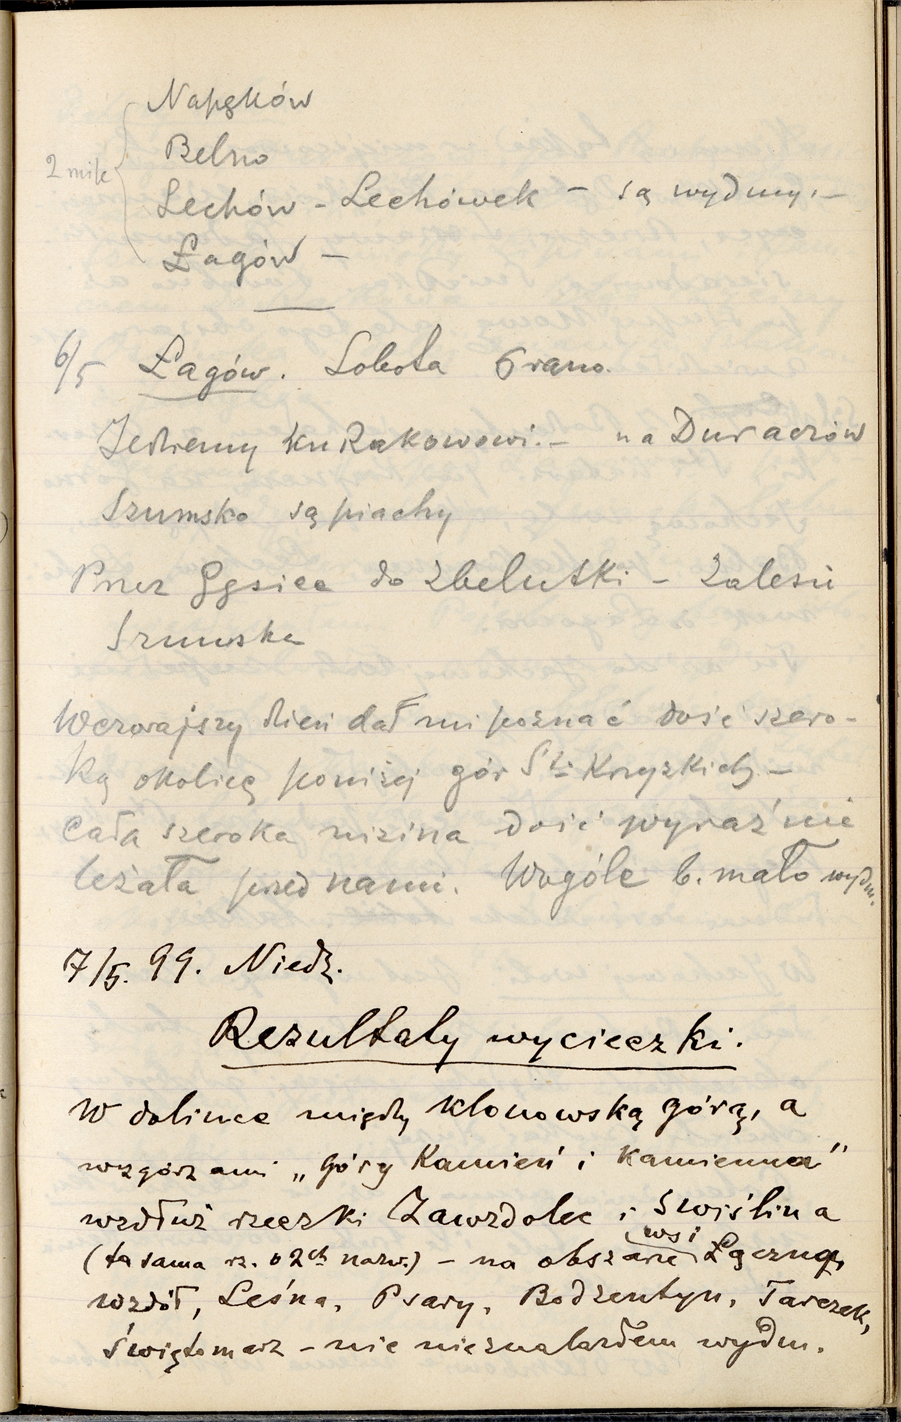 Napęków
Belno
2 mile
Lechów - Lechówek - są wydmy. -
Łagów -
6/5 Łagów. Sobota 6 rano.
Jedziemy ku Rakowowi. - na Duraczów
Szumsko są piachy
Przez Gęsice do Zbelutki - Zalesie
Szumsko
Wczorajszy dzień dał mi poznać dość szero-
ką okolicę poniżej gór Sto Krzyzkich -
Cała szeroka nizina dość wyraźnie
leżała przed nami. Wogóle b. mało wydm.
7/5. 99. Niedz.
Rezultaty wycieczki.
W dolince między Klonowską górą, a
wzgórzami „Góry Kamień i Kamienna"
wzdłuż rzeczki Zawzdolec i Świślina
(ta sama rz. o 2ch nazw.) - na obszarze wsi Łączna,
Wzdół, Leśna, Psary, Bodzentyn, Tarczek,
Świętomarz - nie nieznalazłem wydm.